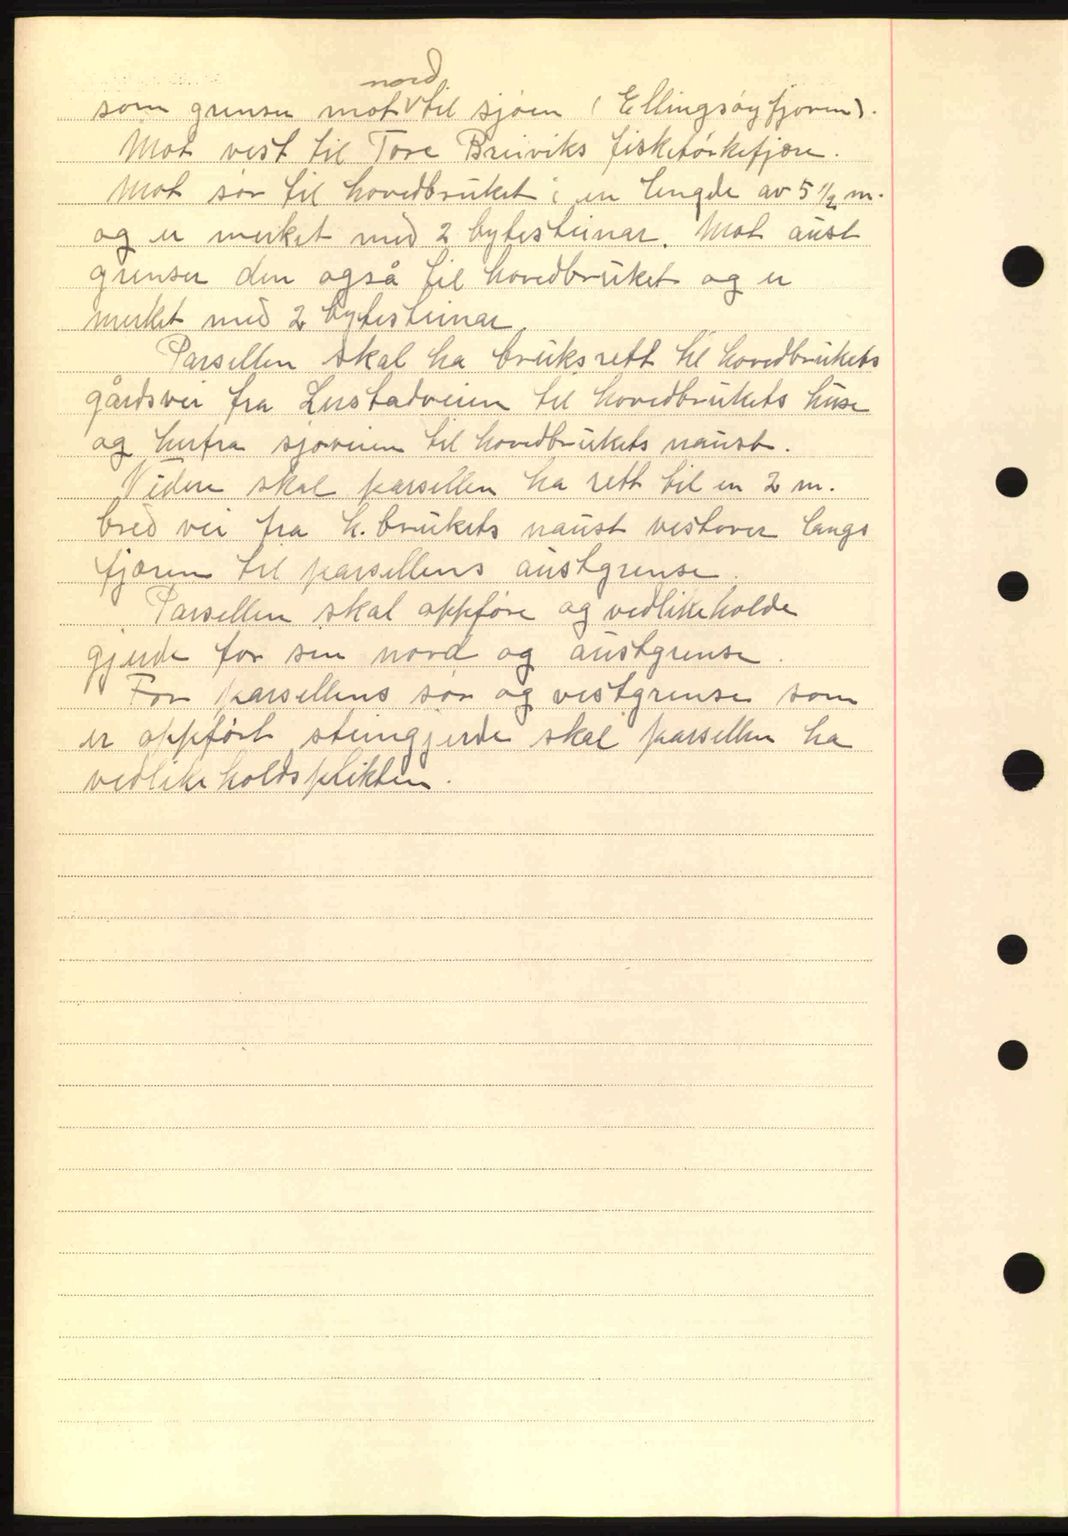 nord
som grenser mot v til sjøen (Ellingsøyfjoren).
Mot vest til Tore Breiviks fisketørkefjære.
Mot sør til hovedbruket i en lengde av 5 1/2 m.
og er merket med 2 bytesteinar. Mot aust
grenser den også til hovedbruket og er
merket med 2 bytesteinar.
Parsellen skal ha bruksrett til hovedbrukets
gårdsvei fra Lerstadveien til hovedbrukets huse
og herfra sjøveien til hovedbrukets naust.
Videre skal parsellen ha rett til en 2 m.
bred vei fra h.brukets naust vestover langs
fjæren til parsellens austgrense.
Parsellen skal oppføre og vedlikeholde
gjerde for sin nord og austgrense.
For parsellens sør og vestgrense som
er oppført steingjerde skal parsellen ha
vedlikeholdsplikten.